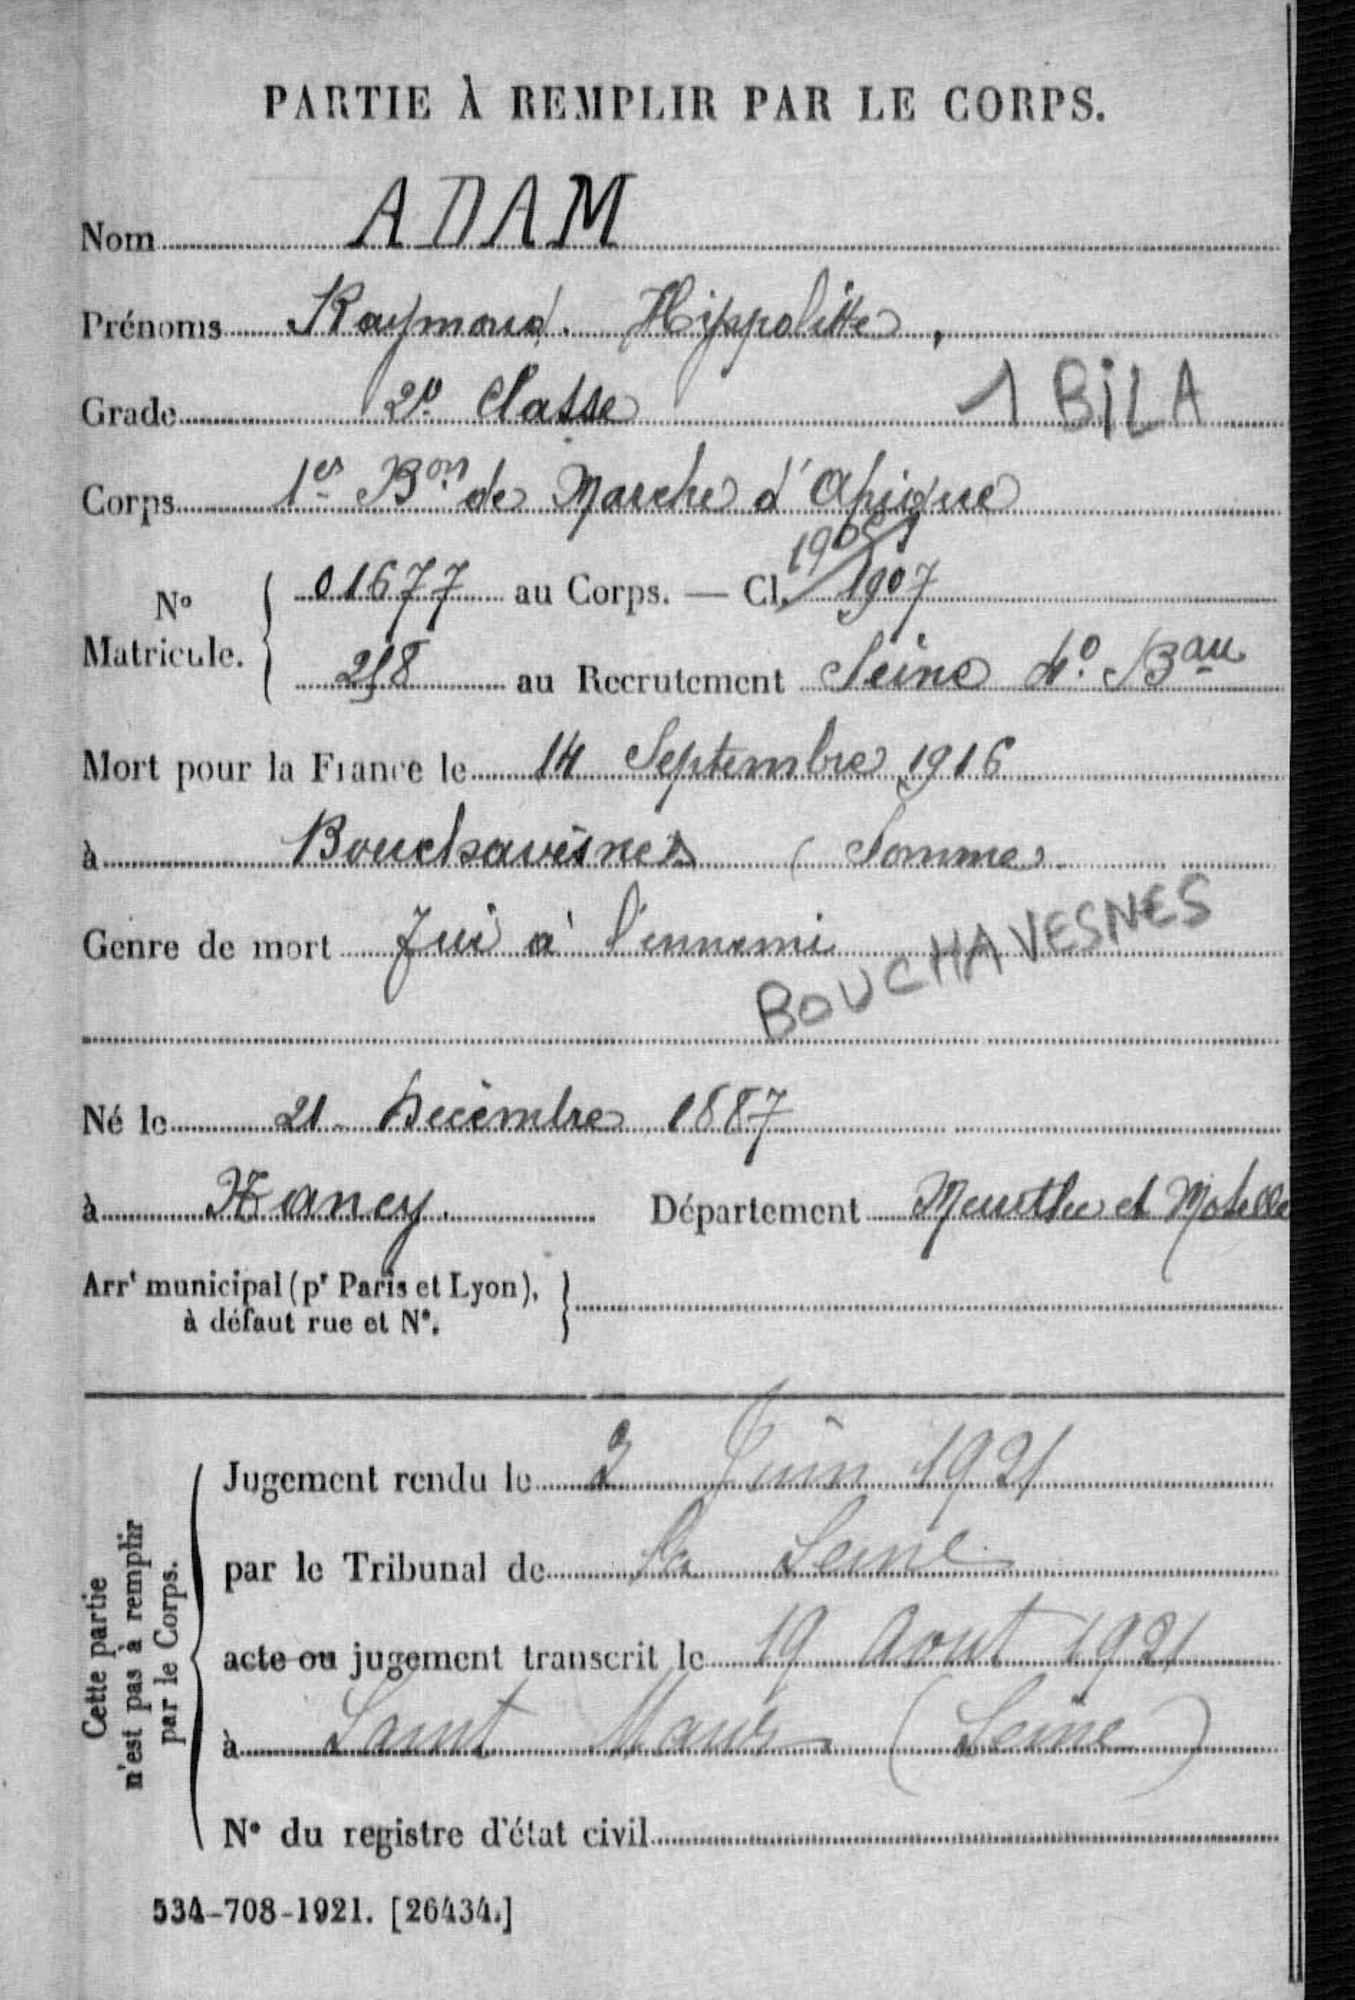 PARTIE À REMPLIR PAR LE CORPS.
Nom ADAM
Prénoms Raymond. Hippolitte,
Grade 2e Classe
1 BILA
Corps 1er Bon de Marche d'Afrique
N° Matricule.
01677 au Corps. — Cl. 1907
au Recrutement Seine 4° Bau
Mort pour la France le 14 Septembre 1916
à Bouchavesnes (Somme
Genre de mort Tué à l'ennemi
BOUCHAVESNES
Né le 21 Décembre 1887
à Nancy. Département Meurthe et Moselle
Arrt municipal (pr Paris et Lyon),
à défaut rue et N°.
Cette partie
n'est pas à remplir
par le Corps.
Jugement rendu le 2 Juin 1921
par le Tribunal de la Seine
acte ou jugement transcrit le 19 Aout 1921
à Saint Maur (Seine)
N° du registre d'état civil
534-708-1921. [26434.]